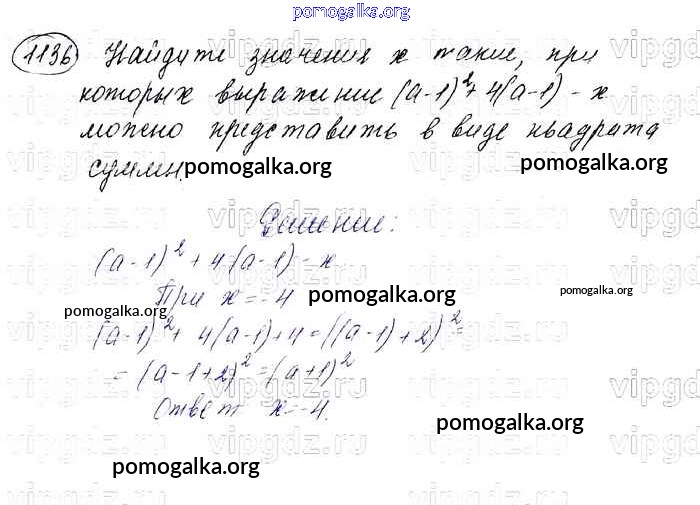 pomogalka.org
1136 Найдите значения x такие, при
которых выражение (a-1)²+4(a-1)-x
можно представить в виде квадрата
суммы.
pomogalka.org
pomogalka.org
Решение:
(a-1)²+4(a-1)-x
При x=-4
pomogalka.org
pomogalka.org
pomogalka.org
(a-1)²+4(a-1)+4=((a-1)+2)²=
=(a-1+2)²=(a+1)²
Ответ x=-4.
pomogalka.org
pomogalka.org
vipgdz.ru